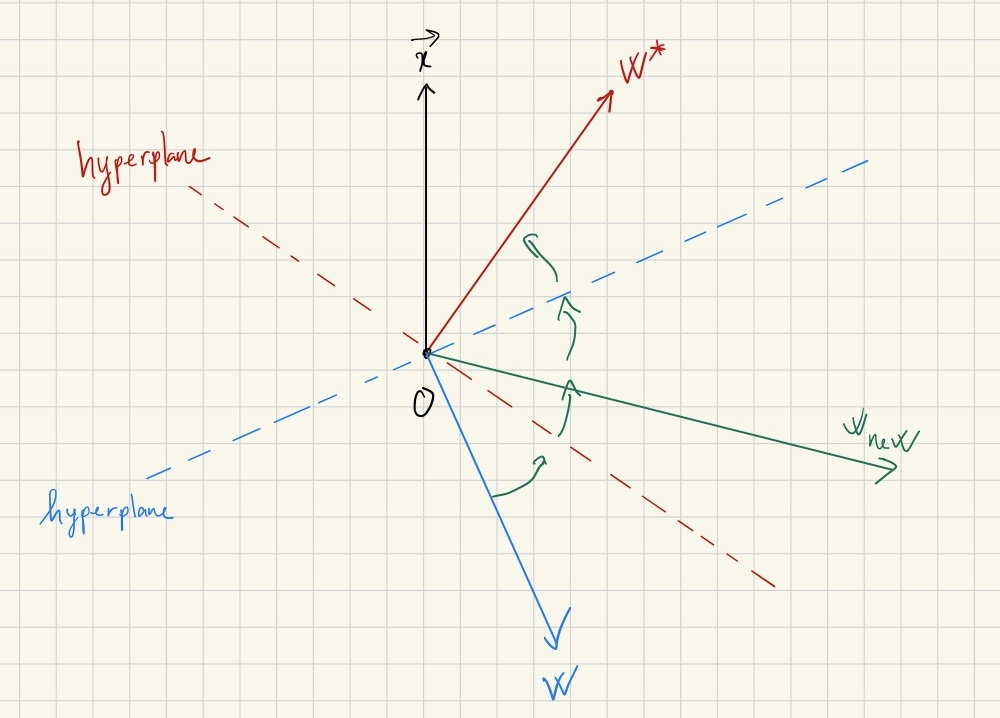 x⃗
W*
hyperplane
O
W_new
hyperplane
W